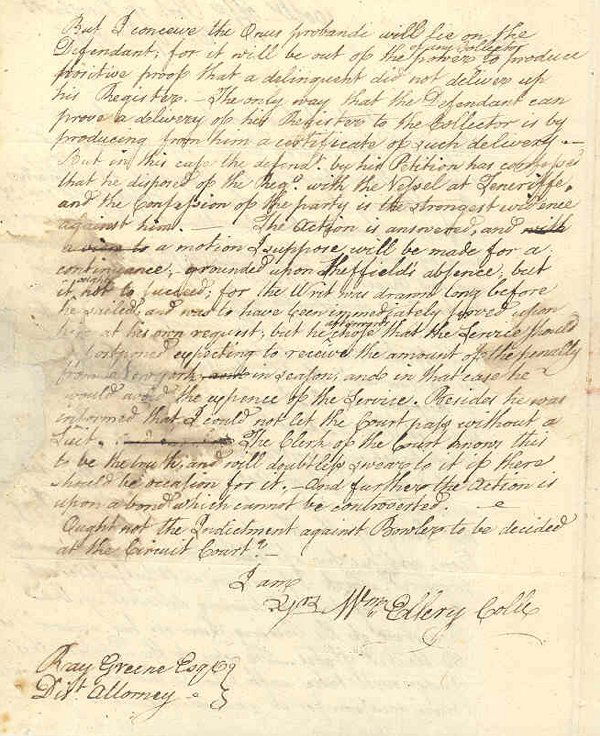 But I conceive the Onus probandi will lie on the
Defendant, for it will be out of the power of any Collector to produce
positive proof that a delinquent did not deliver up
his Register. — The only way that the Defendant can
prove a delivery of his Register to the Collector is by
producing from him a certificate of such delivery. —
But in this case the defend.t by his Petition has confessed
that he disposed of the Reg.r with the Vessel at Teneriffe,
and the Confession of the party is the strongest evidence
against him. — The Action is answered, and with
a view to a motion I suppose, will be made for a
continuance, grounded upon Sheffield's absence, but
it ought not to succeed; for the Writ was drawn long before
he sailed, and was to have been immediately served upon
him at his own request; but he afterwards chose that the Service should
be postponed expecting to receive the amount of the penalty
from New York, in season, and in that case he
would avoid the expence of the Service. Besides he was
informed that I could not let the Court pass without a
Suit. The Clerk of the Court knows this
to be the truth, and will doubtless swear to it if there
should be occasion for it. — And further the Action is
upon a bond which cannot be controverted. —
Ought not the Indictment against Bowler to be decided
at the Circuit Court? —
I am
Yrs Wm Ellery Colle
Ray Greene Esqr
Dist Attorney